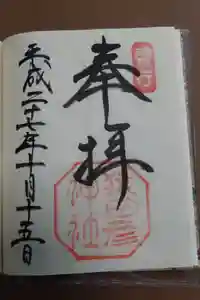 奉拝
平成二十七年十月十五日
神社